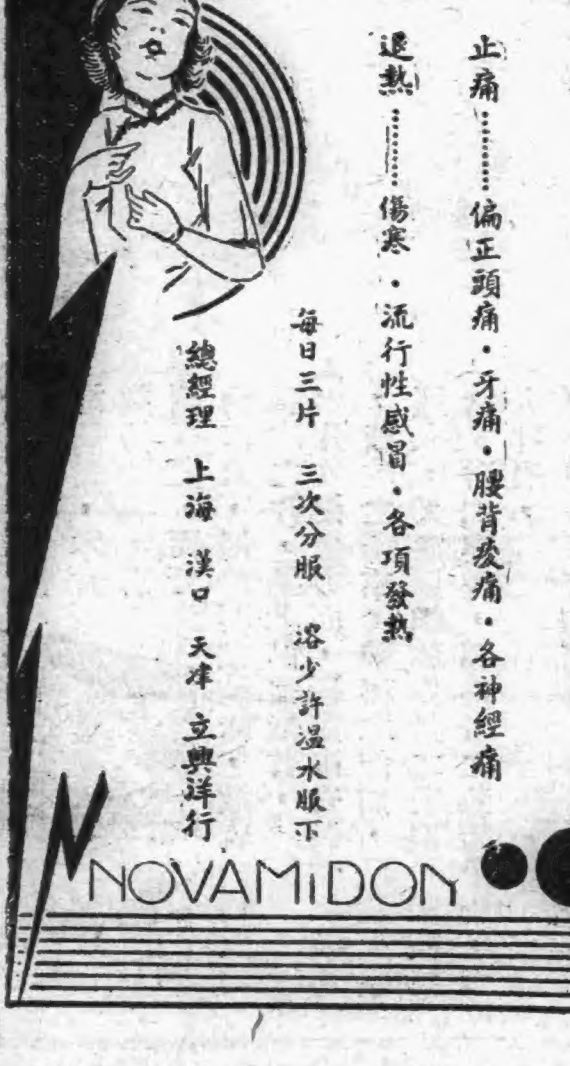 止痛………偏正頭痛・牙痛・腰背痠痛・各神經痛
退熱………傷寒・流行性感冒・各項發熱
每日三片 三次分服 溶少許溫水服下
總經理 上海 漢口 天津 立興洋行
NOVAMiDON